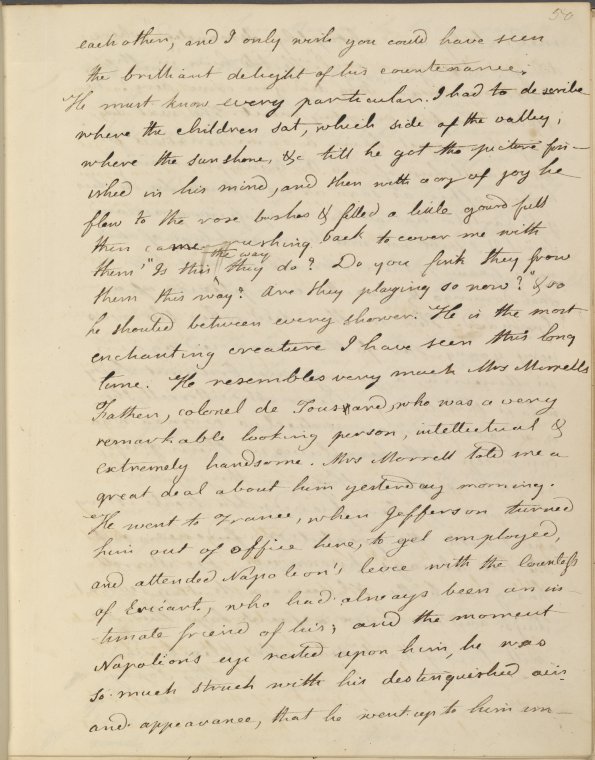 50
each other, and I only wish you could have seen
the brilliant delight of his countenance.
He must know every particular. I had to describe
where the children sat, which side of the valley,
where the sun shone, &c till he got the picture fin-
ished in his mind, and then with a cry of joy he
flew to the rose bushes & filled a little gourd full
then came rushing back to cover me with
the way
them! "Is this they do? Do you fink they frow
them this way? Are they playing so now?" & so
he shouted between every shower. He is the most
enchanting creature I have seen this long
time. He resembles very much Mrs Morrells
Father, colonel de Tousard, who was a very
remarkable looking person, intellectual &
extremely handsome. Mrs Morrell told me a
great deal about him yesterday morning.
He went to France, when Jefferson turned
him out of office here, to get employed,
and attended Napoleon's levee with the Countess
of Ericart, who had always been an in-
timate friend of his; and the moment
Napoleon's eye rested upon him, he was
so much struck with his destinguished air
and appearance, that he went up to him im-